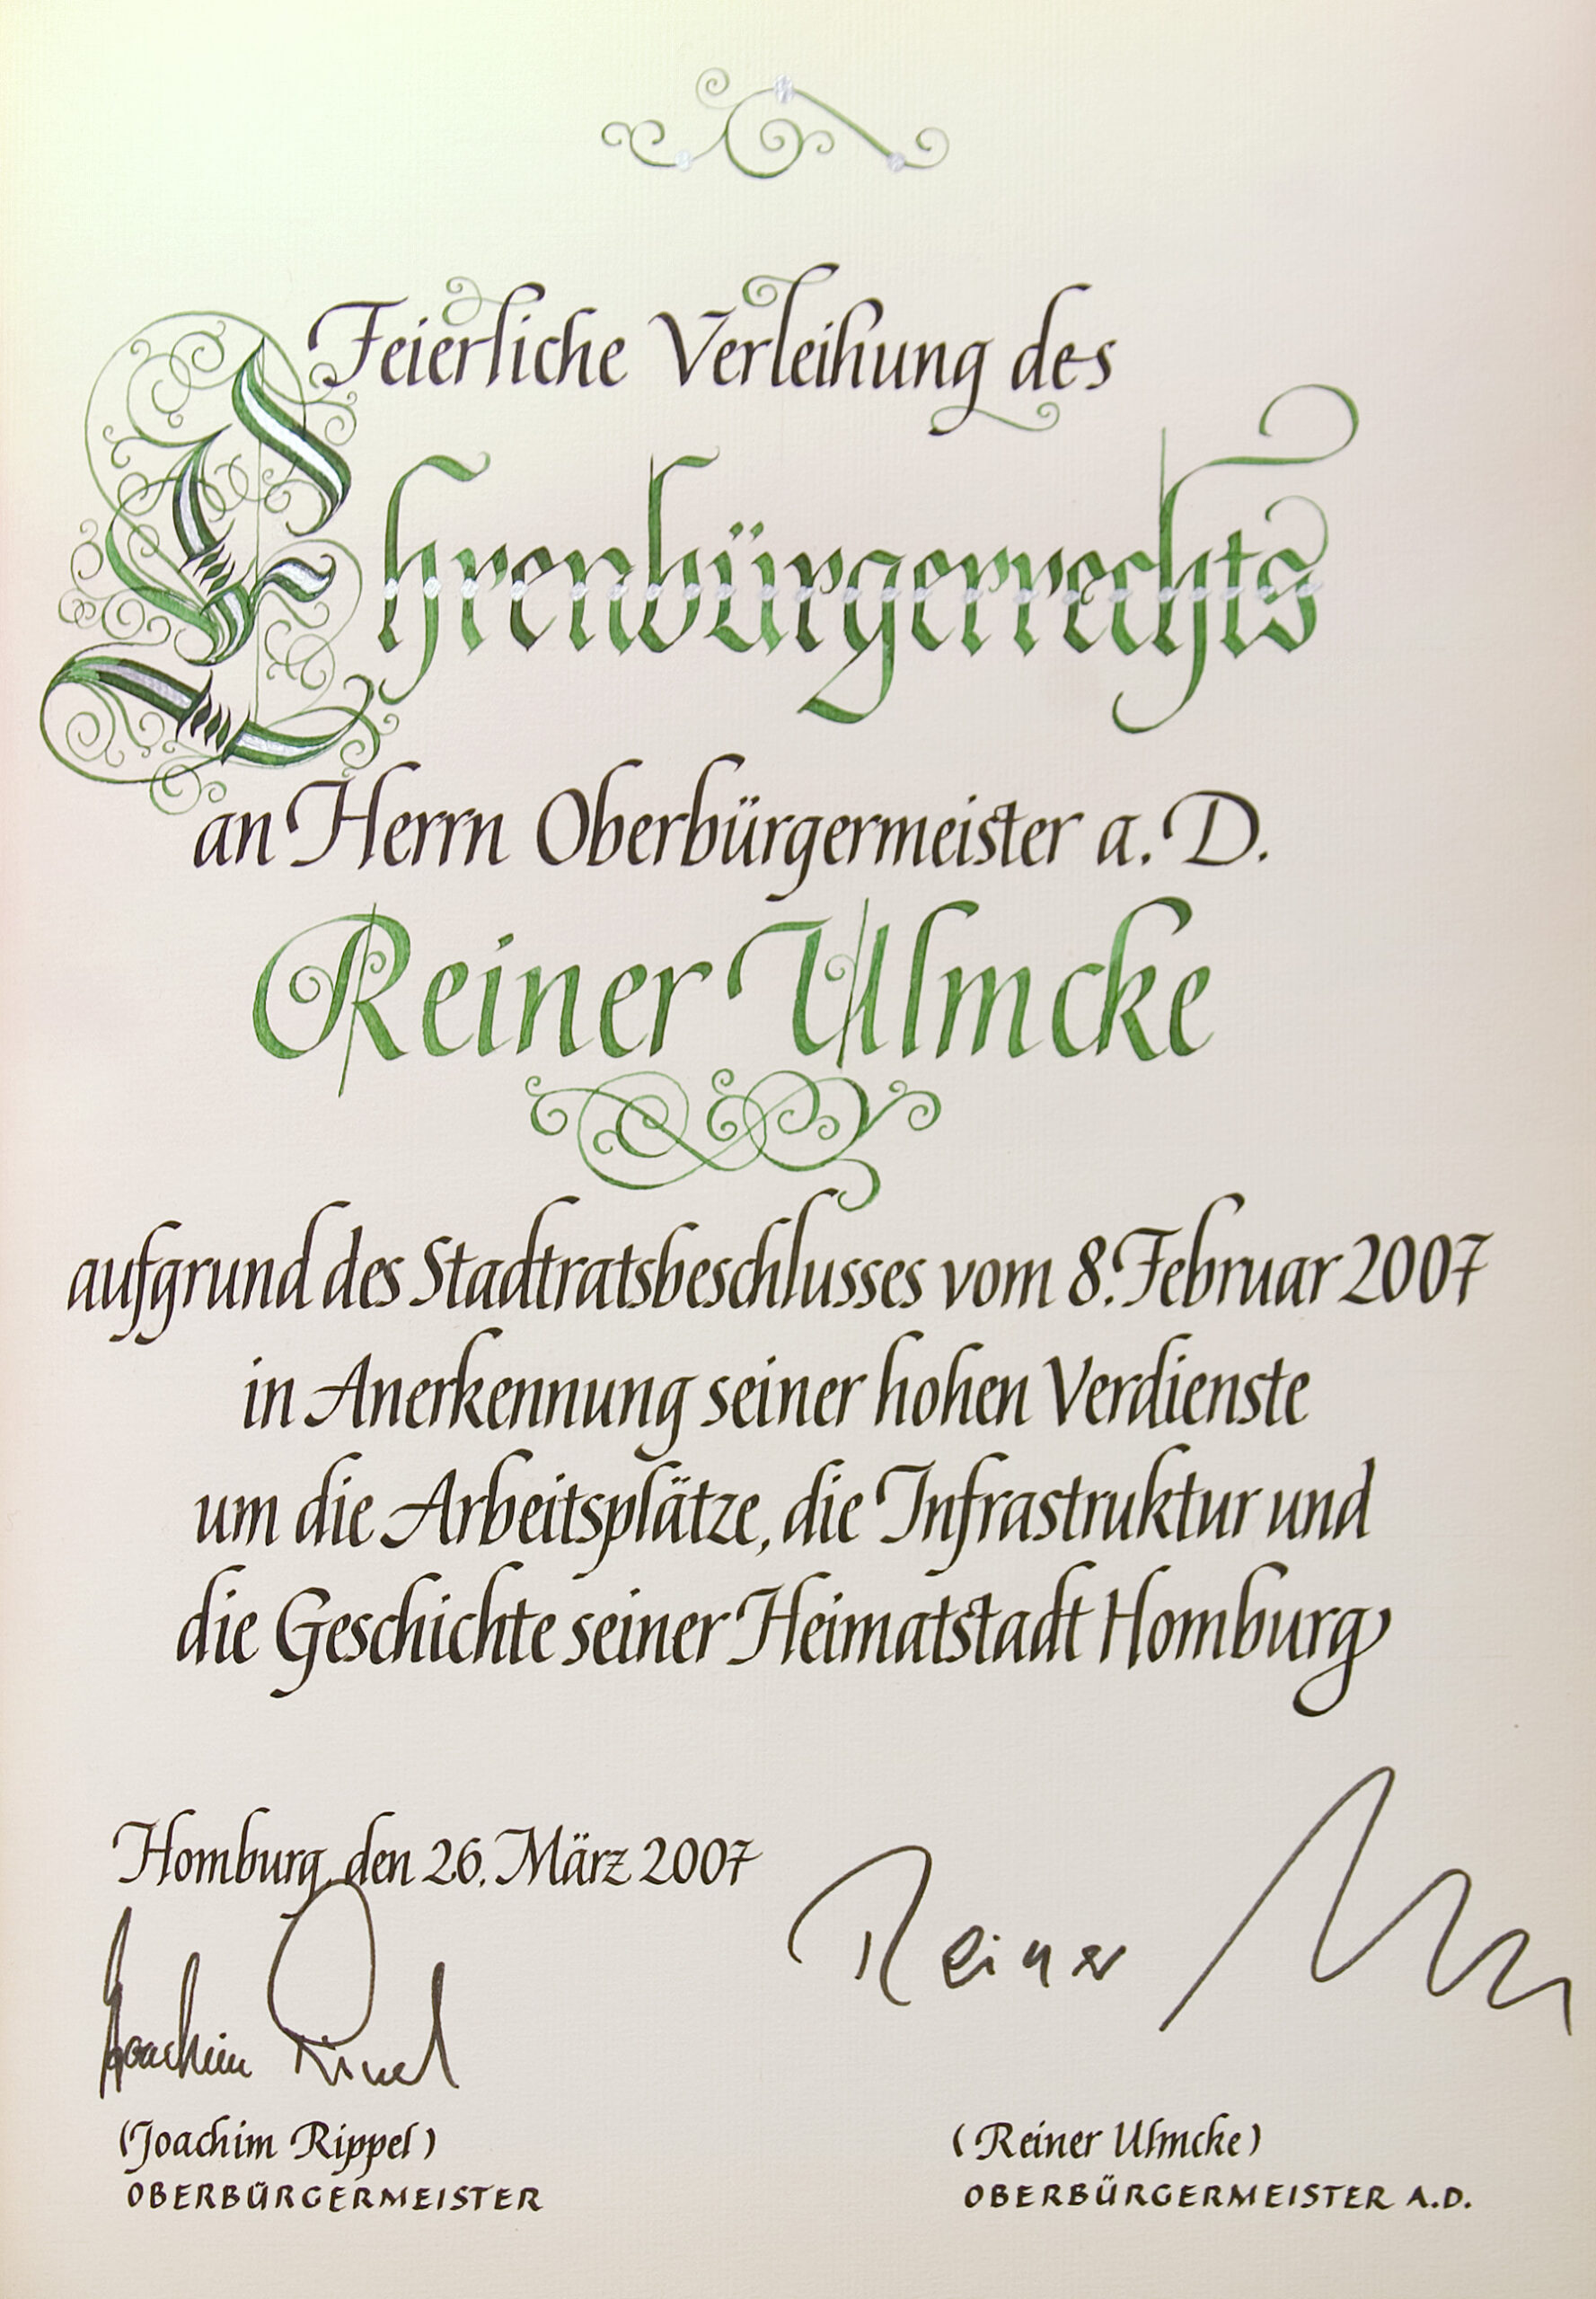 Feierliche Verleihung des
Ehrenbürgerrechts
an Herrn Oberbürgermeister a. D.
Reiner Ulmcke
aufgrund des Stadtratsbeschlusses vom 8. Februar 2007
in Anerkennung seiner hohen Verdienste
um die Arbeitsplätze, die Infrastruktur und
die Geschichte seiner Heimatstadt Homburg
Homburg, den 26. März 2007
Joachim Rippel
Reiner
(Joachim Rippel)
OBERBÜRGERMEISTER
(Reiner Ulmcke)
OBERBÜRGERMEISTER A.D.